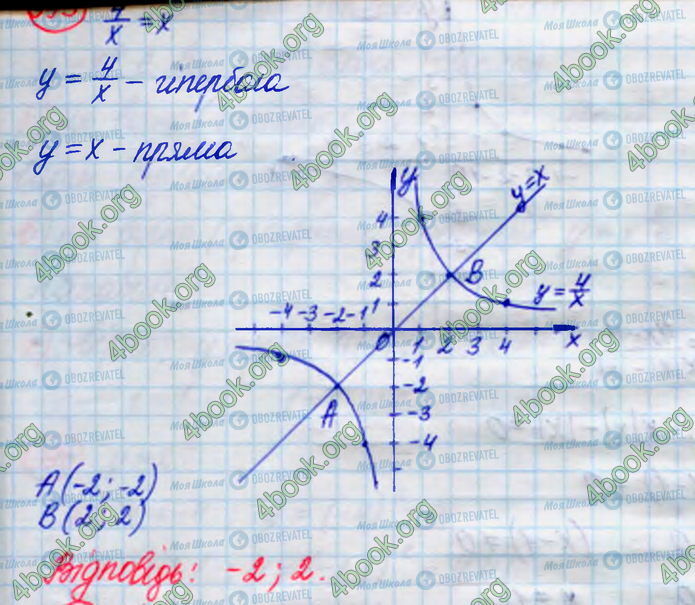 4/x = x
y = 4/x - гіпербола
y = x - пряма
y
y=x
4
3
2
B
y = 4/x
-4 -3 -2 -1
1
0
1 2 3 4
x
-1
-2
A
-3
-4
A(-2; -2)
B(2; 2)
Відповідь: -2; 2.
4book.org
Моя Школа
OBOZREVATEL